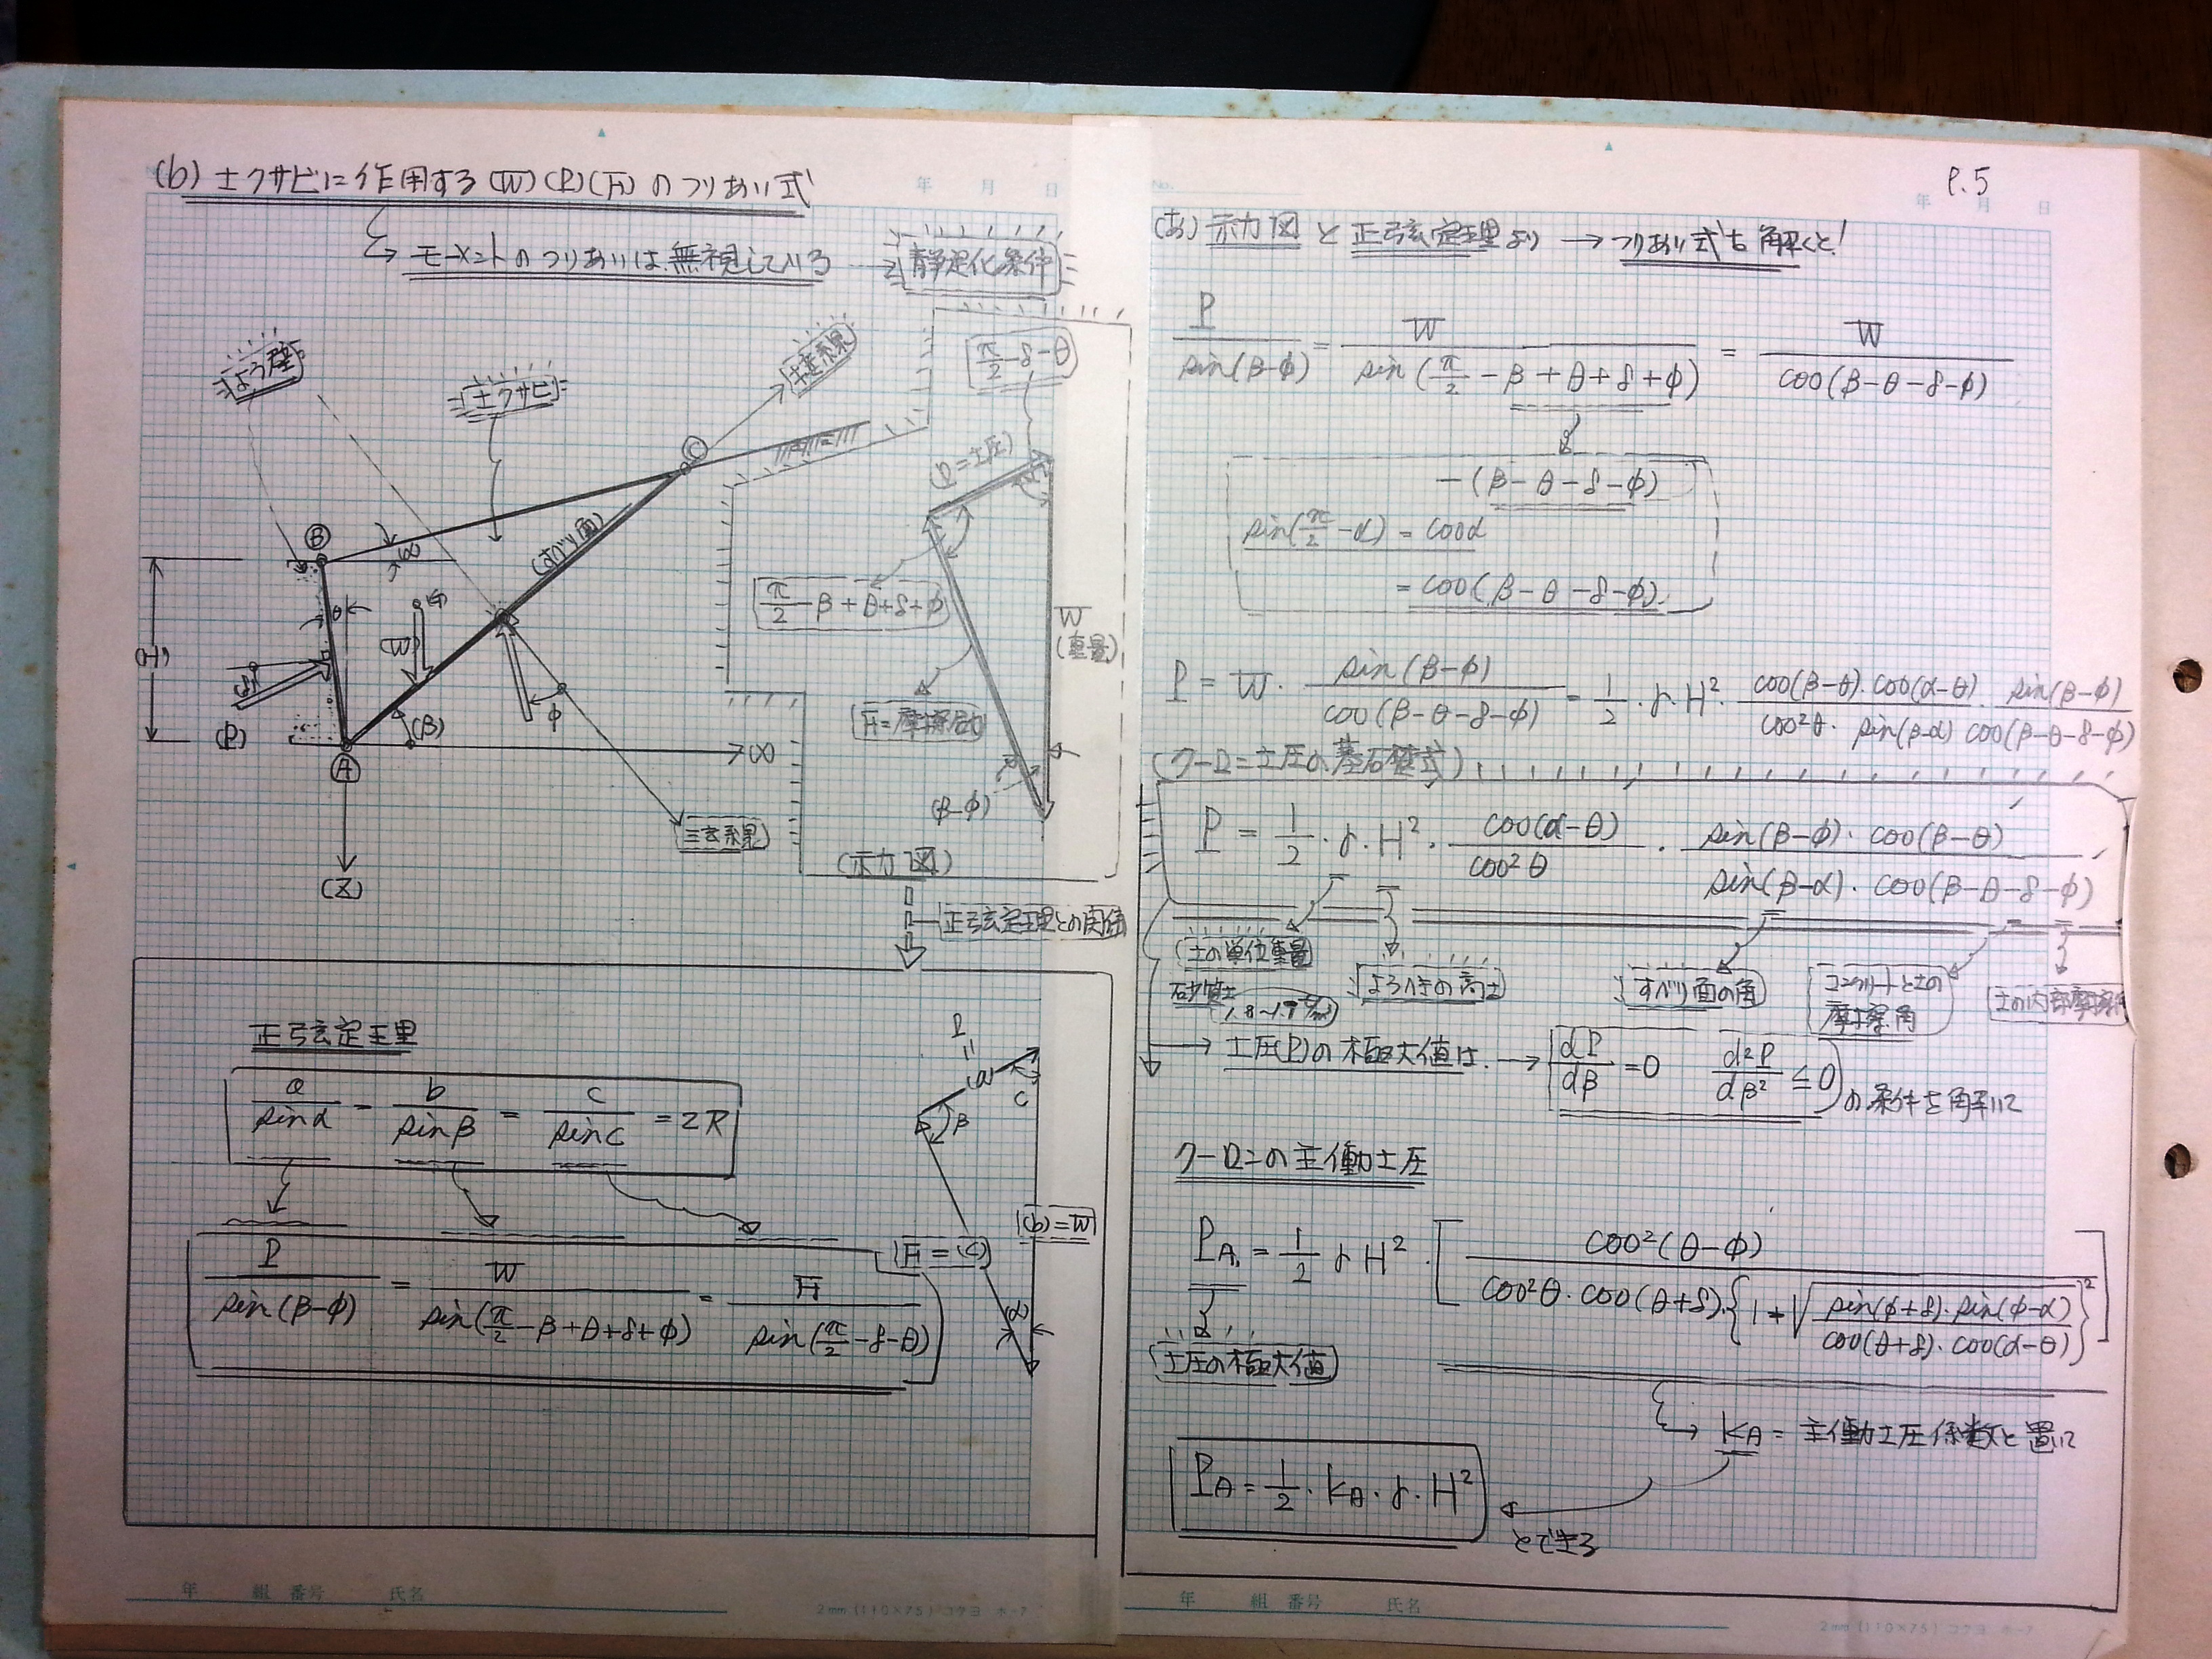 (b) 土クサビに作用する(W)(P)(F)のつりあい式
→ モーメントのつりあいは無視している
静定化条件
よう壁
土クサビ
主系累
π/2-δ-θ
(P=土圧)
C
B
α
(すべり面)
θ
G
(W)
H
δ
(P)
(β)
φ
A
(X)
(Z)
π/2-β+θ+δ+φ
W
(重量)
(β-φ)
(示力図)
正弦定理との関係
正弦定理
a/sinα = b/sinβ = c/sinc = 2R
P/sin(β-φ) = W/sin(π/2-β+θ+δ+φ) = F/sin(π/2-δ-θ)
P
=
(a)
C
β
(b)=W
F=(c)
(α)
年 月 日
年 組 番号 氏名
2mm (110×75) コクヨ ホ-7
P.5
No.
年 月 日
(あ) 示力図と正弦定理より → つりあい式を解くと!
P/sin(β-φ) = W/sin(π/2-β+θ+δ+φ) = W/cos(β-θ-δ-φ)
-(β-θ-δ-φ)
sin(π/2-α) = cosα
= cos(β-θ-δ-φ)
P = W・sin(β-φ)/cos(β-θ-δ-φ) = 1/2・γ・H²・cos(β-θ)・cos(α-θ)・sin(β-φ)/cos²θ・sin(β-α)cos(β-θ-δ-φ)
(クーロン土圧の基礎式)
P = 1/2・γ・H²・cos(α-θ)/cos²θ・sin(β-φ)・cos(β-θ)/sin(β-α)・cos(β-θ-δ-φ)
土の単位重量
砂質土
1.8~1.9 t/m³
よう壁の高さ
すべり面の角
コンクリートと土の
摩擦角
土の内部摩擦角
→ 土圧(P)の極大値は → dP/dβ=0 d²P/dβ²≦0 の条件を解いて
クーロンの主働土圧
PA = 1/2 γH²・[cos²(θ-φ)/cos²θ・cos(θ+δ)・{1+√sin(φ+δ)・sin(φ-α)/cos(θ+δ)・cos(α-θ)}²]
土圧の極大値
→ KA = 主働土圧係数と置いて
PA = 1/2・KA・γ・H²
とできる
年 組 番号 氏名
2mm (110×75) コクヨ ホ-7